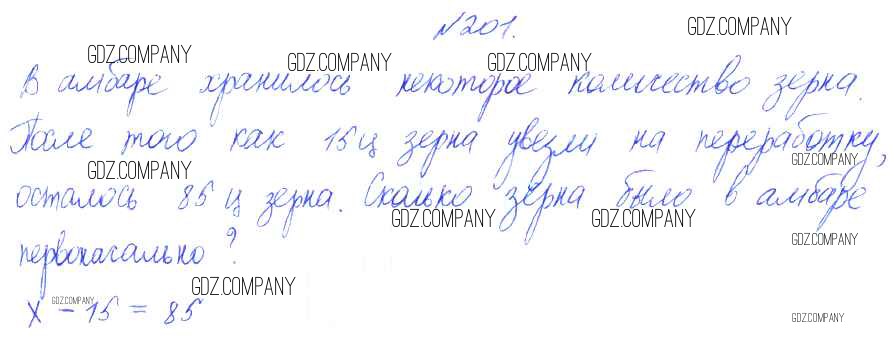 №201.
GDZ.COMPANY
GDZ.COMPANY
GDZ.COMPANY
GDZ.COMPANY
В амбаре хранилось некоторое количество зерна.
После того как 15 ц зерна увезли на переработку,
GDZ.COMPANY
GDZ.COMPANY
осталось 85 ц зерна. Сколько зерна было в амбаре
GDZ.COMPANY
GDZ.COMPANY
GDZ.COMPANY
первоначально?
GDZ.COMPANY
GDZ.COMPANY
x - 15 = 85
GDZ.COMPANY